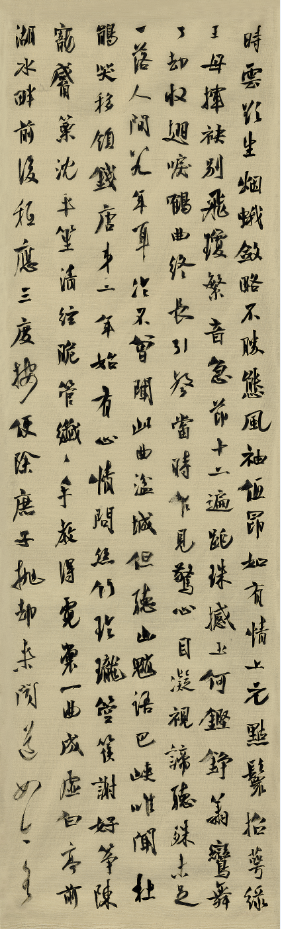 時雲欲生烟蛾斂略不勝態風袖低昂如有情上元點鬟招萼綠
王母揮袂別飛瓊繁音急節十二遍跳珠撼玉何鏗錚翔鸞舞
了却收翅唳鶴曲終長引聲當時乍見驚心目凝視諦聽殊未足
一落人間八九年耳冷不曾聞此曲湓城但聽山魈語巴峽唯聞杜
鵑哭移領錢唐第二年始有心情問絲竹玲瓏箜篌謝好箏陳
寵觱篥沈平笙清絃脆管纖々手教得霓裳一曲成虛白亭前
湖水畔前後秪應三度按便除庶子抛却來聞道如今各